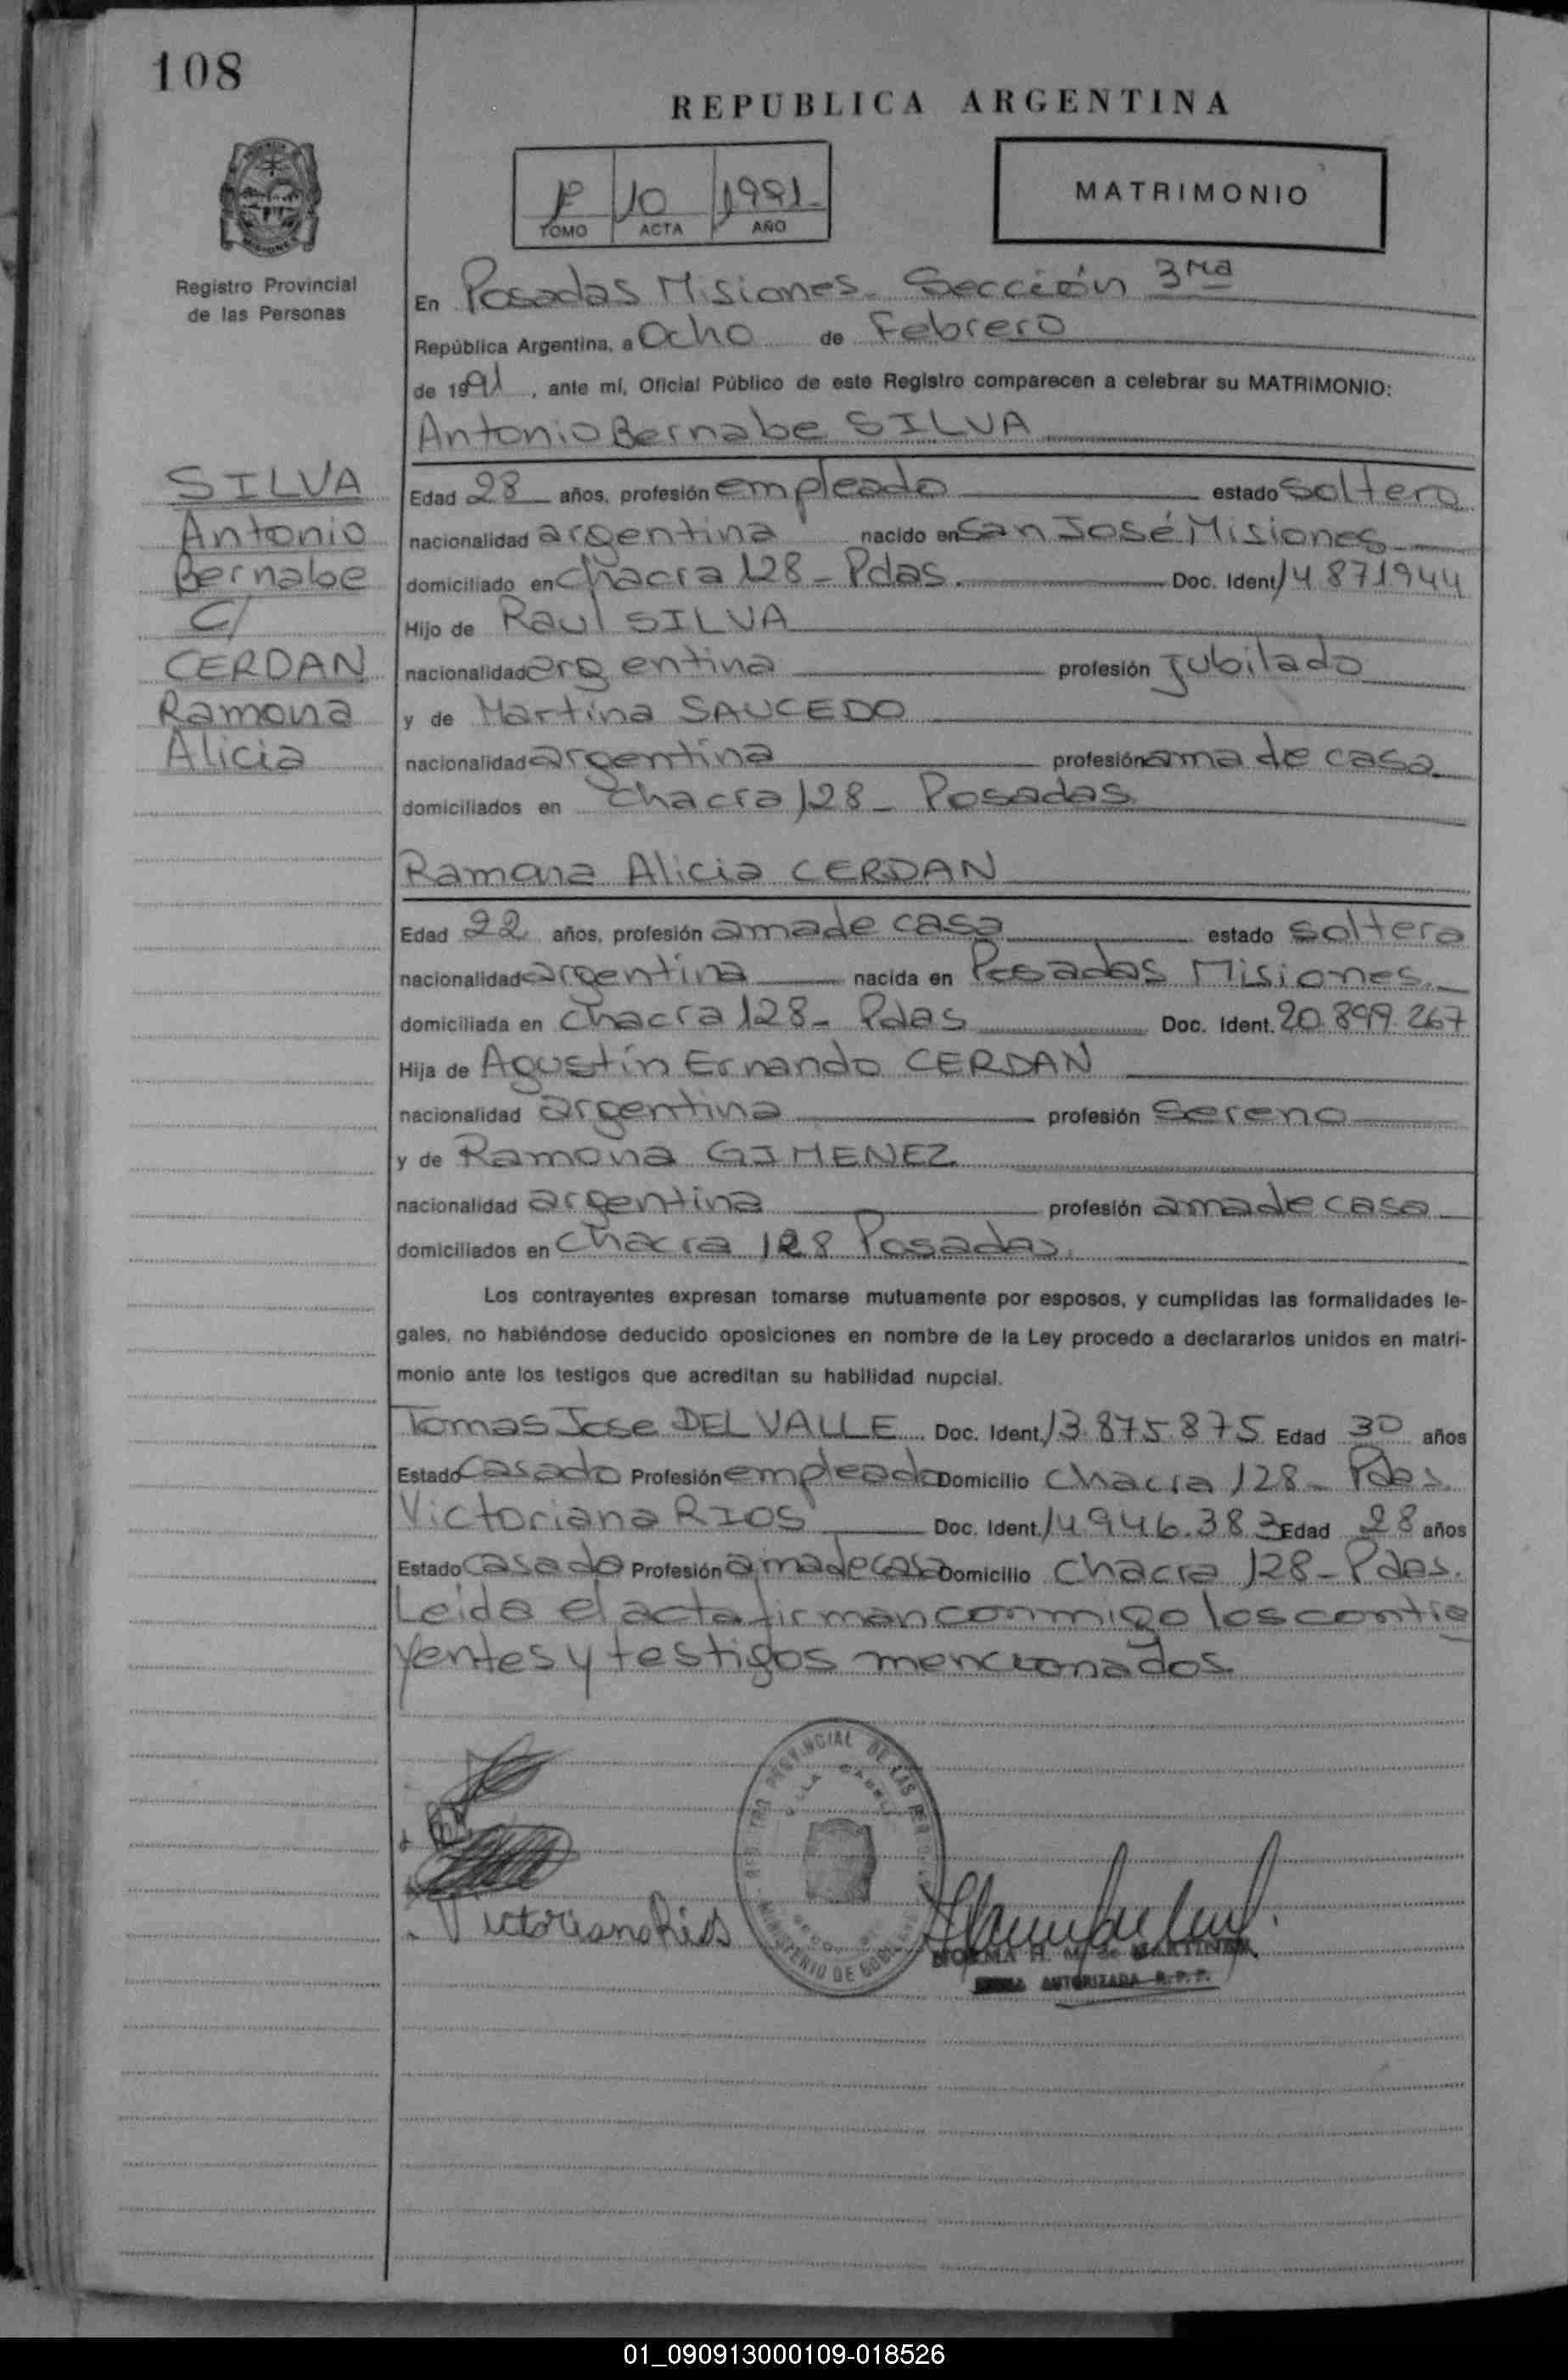 108
REPUBLICA ARGENTINA
1º 10 1991
TOMO ACTA AÑO
MATRIMONIO
Registro Provincial
de las Personas
En Posadas Misiones - Sección 3ra
República Argentina, a Ocho de Febrero
de 1991, ante mí, Oficial Público de este Registro comparecen a celebrar su MATRIMONIO:
Antonio Bernabe SILVA
SILVA
Antonio
Bernabe
C/
CERDAN
Ramona
Alicia
Edad 28 años, profesión empleado estado soltero
nacionalidad argentina nacido en San José Misiones
domiciliado en chacra 128 - Pdas. Doc. Ident. 14871944
Hijo de Raul SILVA
nacionalidad argentina profesión jubilado
y de Martina SAUCEDO
nacionalidad argentina profesión ama de casa
domiciliados en chacra 128 - Posadas
Ramona Alicia CERDAN
Edad 22 años, profesión ama de casa estado soltera
nacionalidad argentina nacida en Posadas Misiones.
domiciliada en chacra 128 - Pdas Doc. Ident. 20.899.267
Hija de Agustín Ernando CERDAN
nacionalidad argentina profesión sereno
y de Ramona GIMENEZ
nacionalidad argentina profesión ama de casa
domiciliados en chacra 128 Posadas.
Los contrayentes expresan tomarse mutuamente por esposos, y cumplidas las formalidades le-
gales, no habiéndose deducido oposiciones en nombre de la Ley procedo a declararlos unidos en matri-
monio ante los testigos que acreditan su habilidad nupcial.
Tomas Jose DEL VALLE Doc. Ident. 13.875.875 Edad 30 años
Estado casado Profesión empleado Domicilio chacra 128 - Pdas.
Victoriana RIOS Doc. Ident. 14946.383 Edad 28 años
Estado casado Profesión ama de casa Domicilio chacra 128 - Pdas.
Leida el acta firman conmigo los contra
yentes y testigos mencionados.
Victoriana Rios
REGISTRO PROVINCIAL DE LAS
MINISTERIO DE
NORMA H. M. de MARTINEZ
AUTORIZADA R.P.P.
01_090913000109-018526